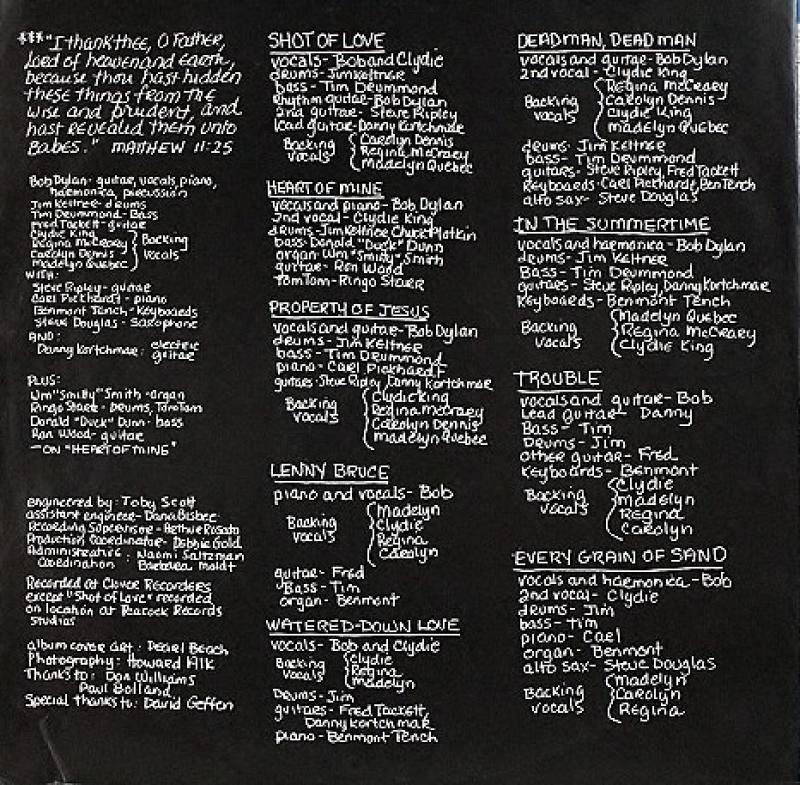 ***"I thank thee, O Father,
lord of heaven and earth,
because thou hast hidden
these things from the
wise and prudent, and
hast revealed them unto
Babes." MATTHEW 11:25
Bob Dylan- guitar, vocals, piano,
haemonica, percussion
Jim Keltner- drums
Tim Drummond- Bass
Fred Tackett- guitar
Clydie King
Regina McCreary
Carolyn Dennis
Madelyn Quebec
Backing
vocals
WITH:
Steve Ripley- guitar
Carl Pickhardt- piano
Benmont Tench- Keyboards
Steve Douglas- Saxophone
AND:
Danny Kortchmar: electric
guitar
PLUS:
Wm "Smitty" Smith- organ
Ringo Starr- Drums, TomTom
Donald "Duck" Dunn- bass
Ron Wood- guitar
-ON "HEART OF MINE"
engineered by: Toby Scott
assistant engineer- Dana Bisbee
Recording Supervisor- Arthur Rosato
Production Coordinator- Debbie Gold
Administrative
Coordination : Naomi Saltzman
Barbara Moldt
Recorded at Clover Recorders
except "Shot of Love" recorded
on location at Peacock Records
Studios
album cover art: Pearl Beach
Photography: Howard Alk
Thanks to: Don Williams
Paul Bolland
Special thanks to: David Geffen
SHOT OF LOVE
vocals- Bob and Clydie
drums- Jim Keltner
bass- Tim Drummond
Rhythm guitar- Bob Dylan
2nd guitar- Steve Ripley
lead guitar- Danny Kortchmar
Backing
vocals
Carolyn Dennis
Regina McCrary
Madelyn Quebec
HEART OF MINE
vocals and piano- Bob Dylan
2nd vocal- Clydie King
drums- Jim Keltner, Chuck Plotkin
bass- Donald "Duck" Dunn
organ- Wm "Smitty" Smith
guitar- Ron Wood
TomTom- Ringo Starr
PROPERTY OF JESUS
vocals and guitar- Bob Dylan
drums- Jim Keltner
bass- Tim Drummond
piano- Carl Pickhardt
guitars- Steve Ripley, Danny Kortchmar
Backing
vocals
Clydie King
Regina McCrary
Carolyn Dennis
Madelyn Quebec
LENNY BRUCE
piano and vocals- Bob
Backing
vocals
Madelyn
Clydie
Regina
Carolyn
guitar- Fred
Bass- Tim
organ- Benmont
WATERED-DOWN LOVE
vocals- Bob and Clydie
Backing
vocals
Clydie
Regina
Madelyn
Drums- Jim
guitars- Fred Tackett,
Danny Kortchmar
piano- Benmont Tench
DEAD MAN, DEAD MAN
vocals and guitar- Bob Dylan
2nd vocal- Clydie King
Backing
vocals
Regina McCreary
Carolyn Dennis
Clydie King
Madelyn Quebec
drums- Jim Keltner
bass- Tim Drummond
guitars- Steve Ripley, Fred Tackett
Keyboards- Carl Pickhardt, Ben Tench
alto sax- Steve Douglas
IN THE SUMMERTIME
vocals and haemonica- Bob Dylan
drums- Jim Keltner
Bass- Tim Drummond
guitars- Steve Ripley, Danny Kortchmar
Keyboards- Benmont Tench
Backing
vocals
Madelyn Quebec
Regina McCreary
Clydie King
TROUBLE
vocals and guitar- Bob
Lead guitar- Danny
Bass- Tim
Drums- Jim
other guitar- Fred
Keyboards- Benmont
Backing
vocals
Clydie
Madelyn
Regina
Carolyn
EVERY GRAIN OF SAND
vocals and haemonica- Bob
2nd vocal- Clydie
drums- Jim
bass- Tim
piano- Carl
organ- Benmont
alto sax- Steve Douglas
Backing
vocals
Madelyn
Carolyn
Regina